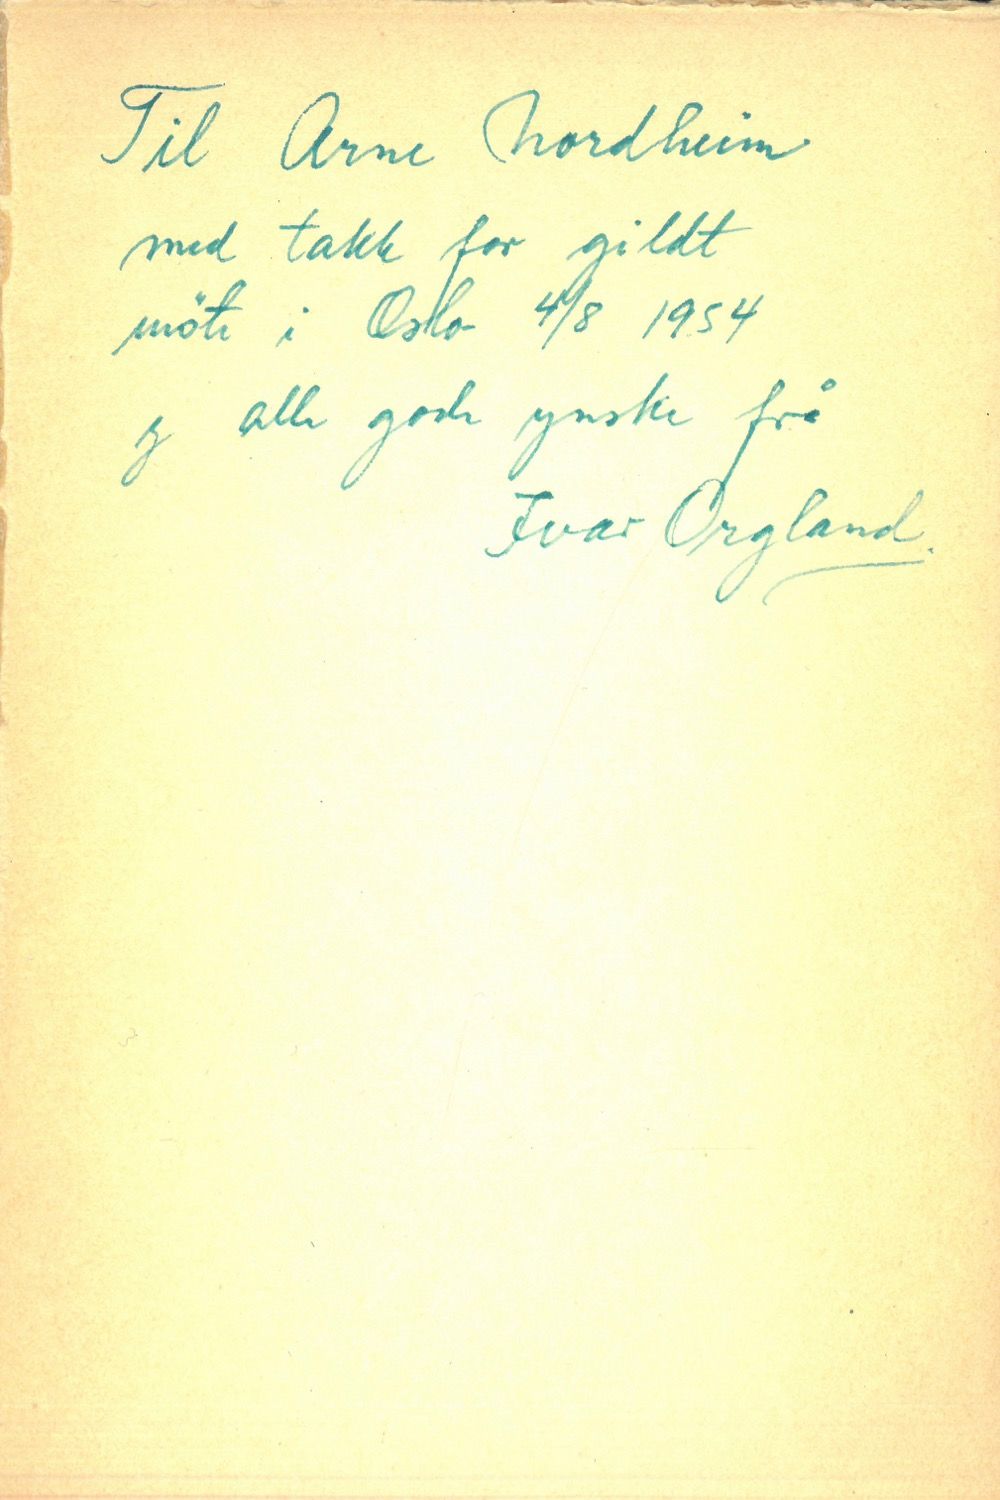 Til Arne Nordheim
med takk for gildt
möte i Oslo 4/8 1954
og alle gode ynske frå
Ivar Orgland.